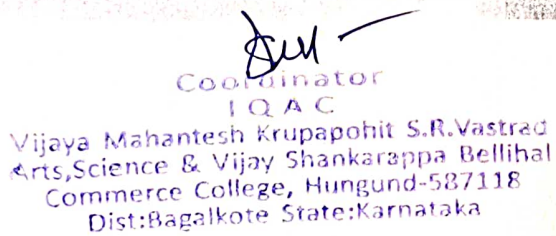 Coordinator
I Q A C
Vijaya Mahantesh Krupapohit S.R.Vastrad
Arts,Science & Vijay Shankarappa Bellihal
Commerce College, Hungund-587118
Dist:Bagalkote State:Karnataka